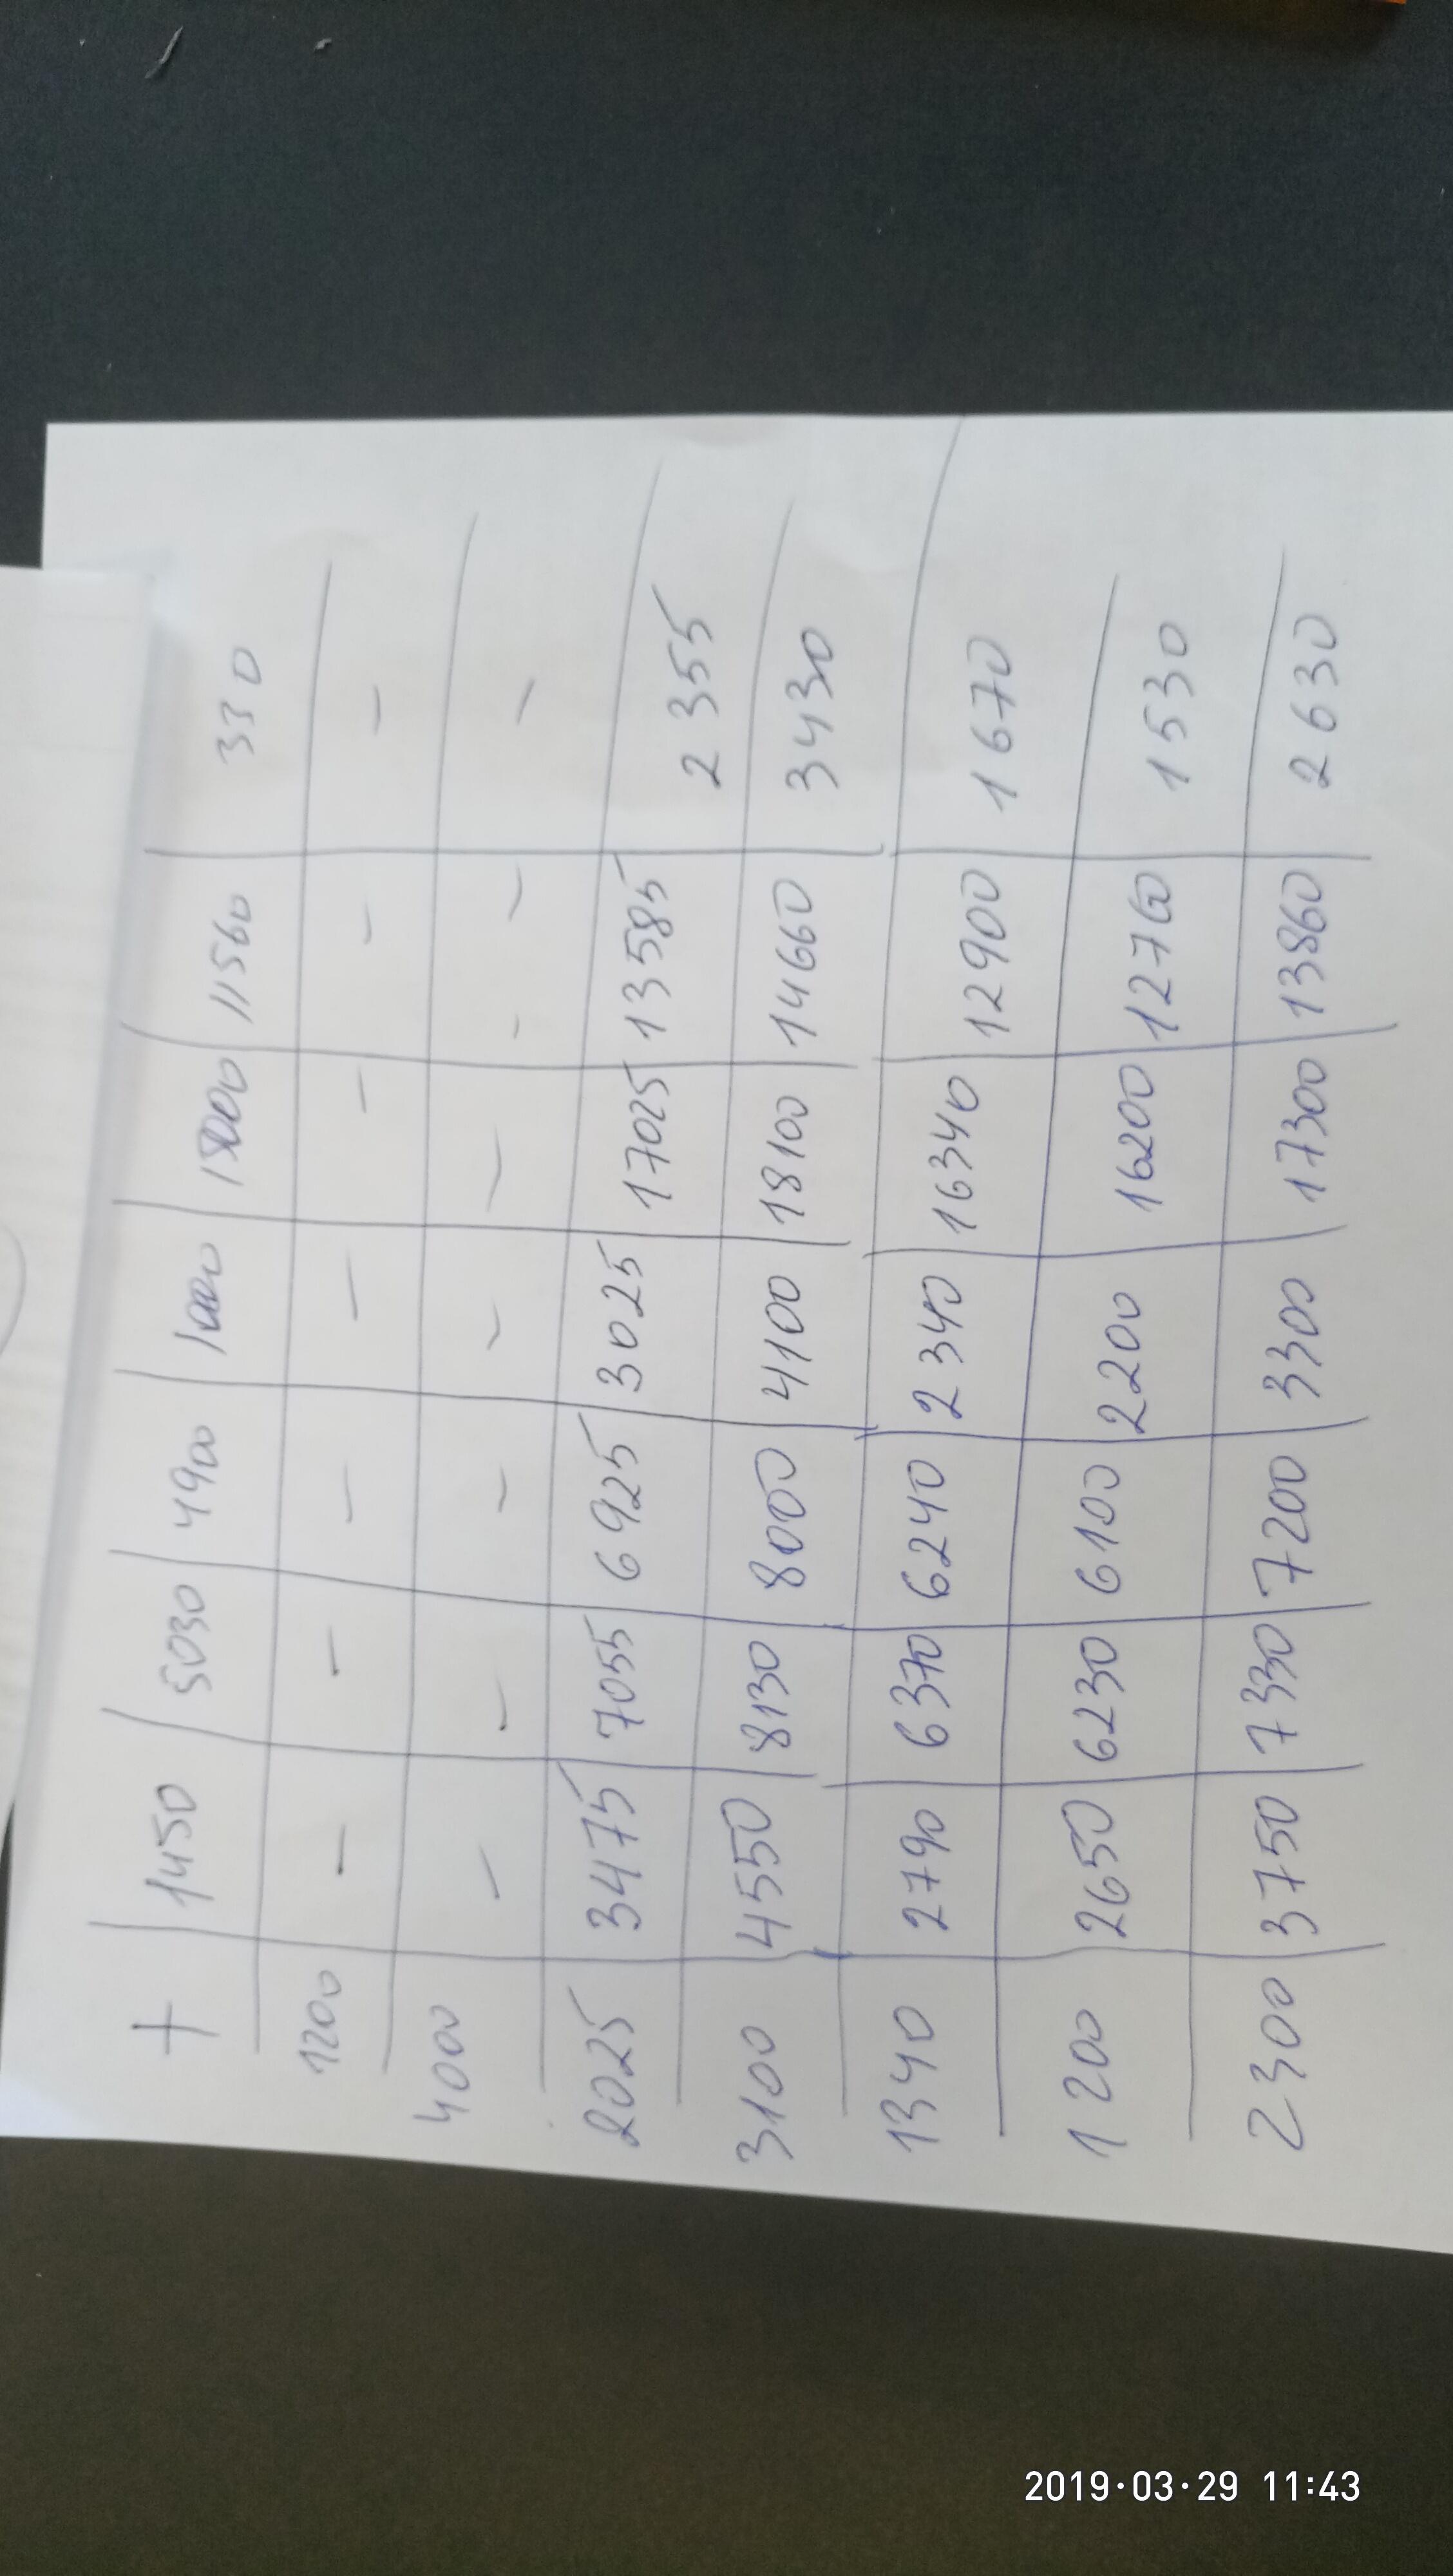 + 1450 5030 4900 1000 15000 11560 330
1200 - - - - - - -
4000 - - - - - - - -
2025 3475 7055 6925 3025 17025 13585 2355
3100 4550 8130 8000 4100 18100 14660 3430
1340 2790 6370 6240 2340 16340 12900 1670
1200 2650 6230 6100 2200 16200 12760 1530
2300 3750 7330 7200 3300 17300 13860 2630
2019·03·29 11:43